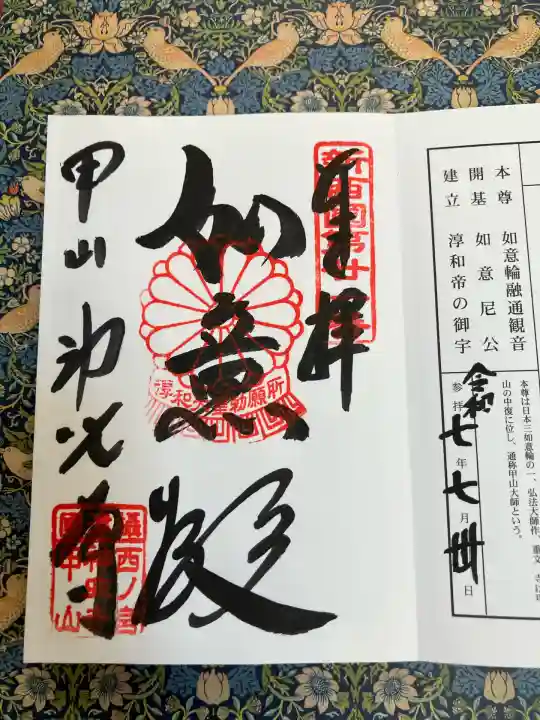 本尊　如意輪融通観音
開基　如意尼公
建立　淳和帝の御宇
本尊は日本三如意輪の一、弘法大師作、重文、寺は甲
山の中腹に位し、通称甲山大師という。
参拝 令和七年七月卅日
奉拝
新西国第廿一
如意殿
淳和天皇勅願所
甲山神呪寺
攝西ノ宮
甲山